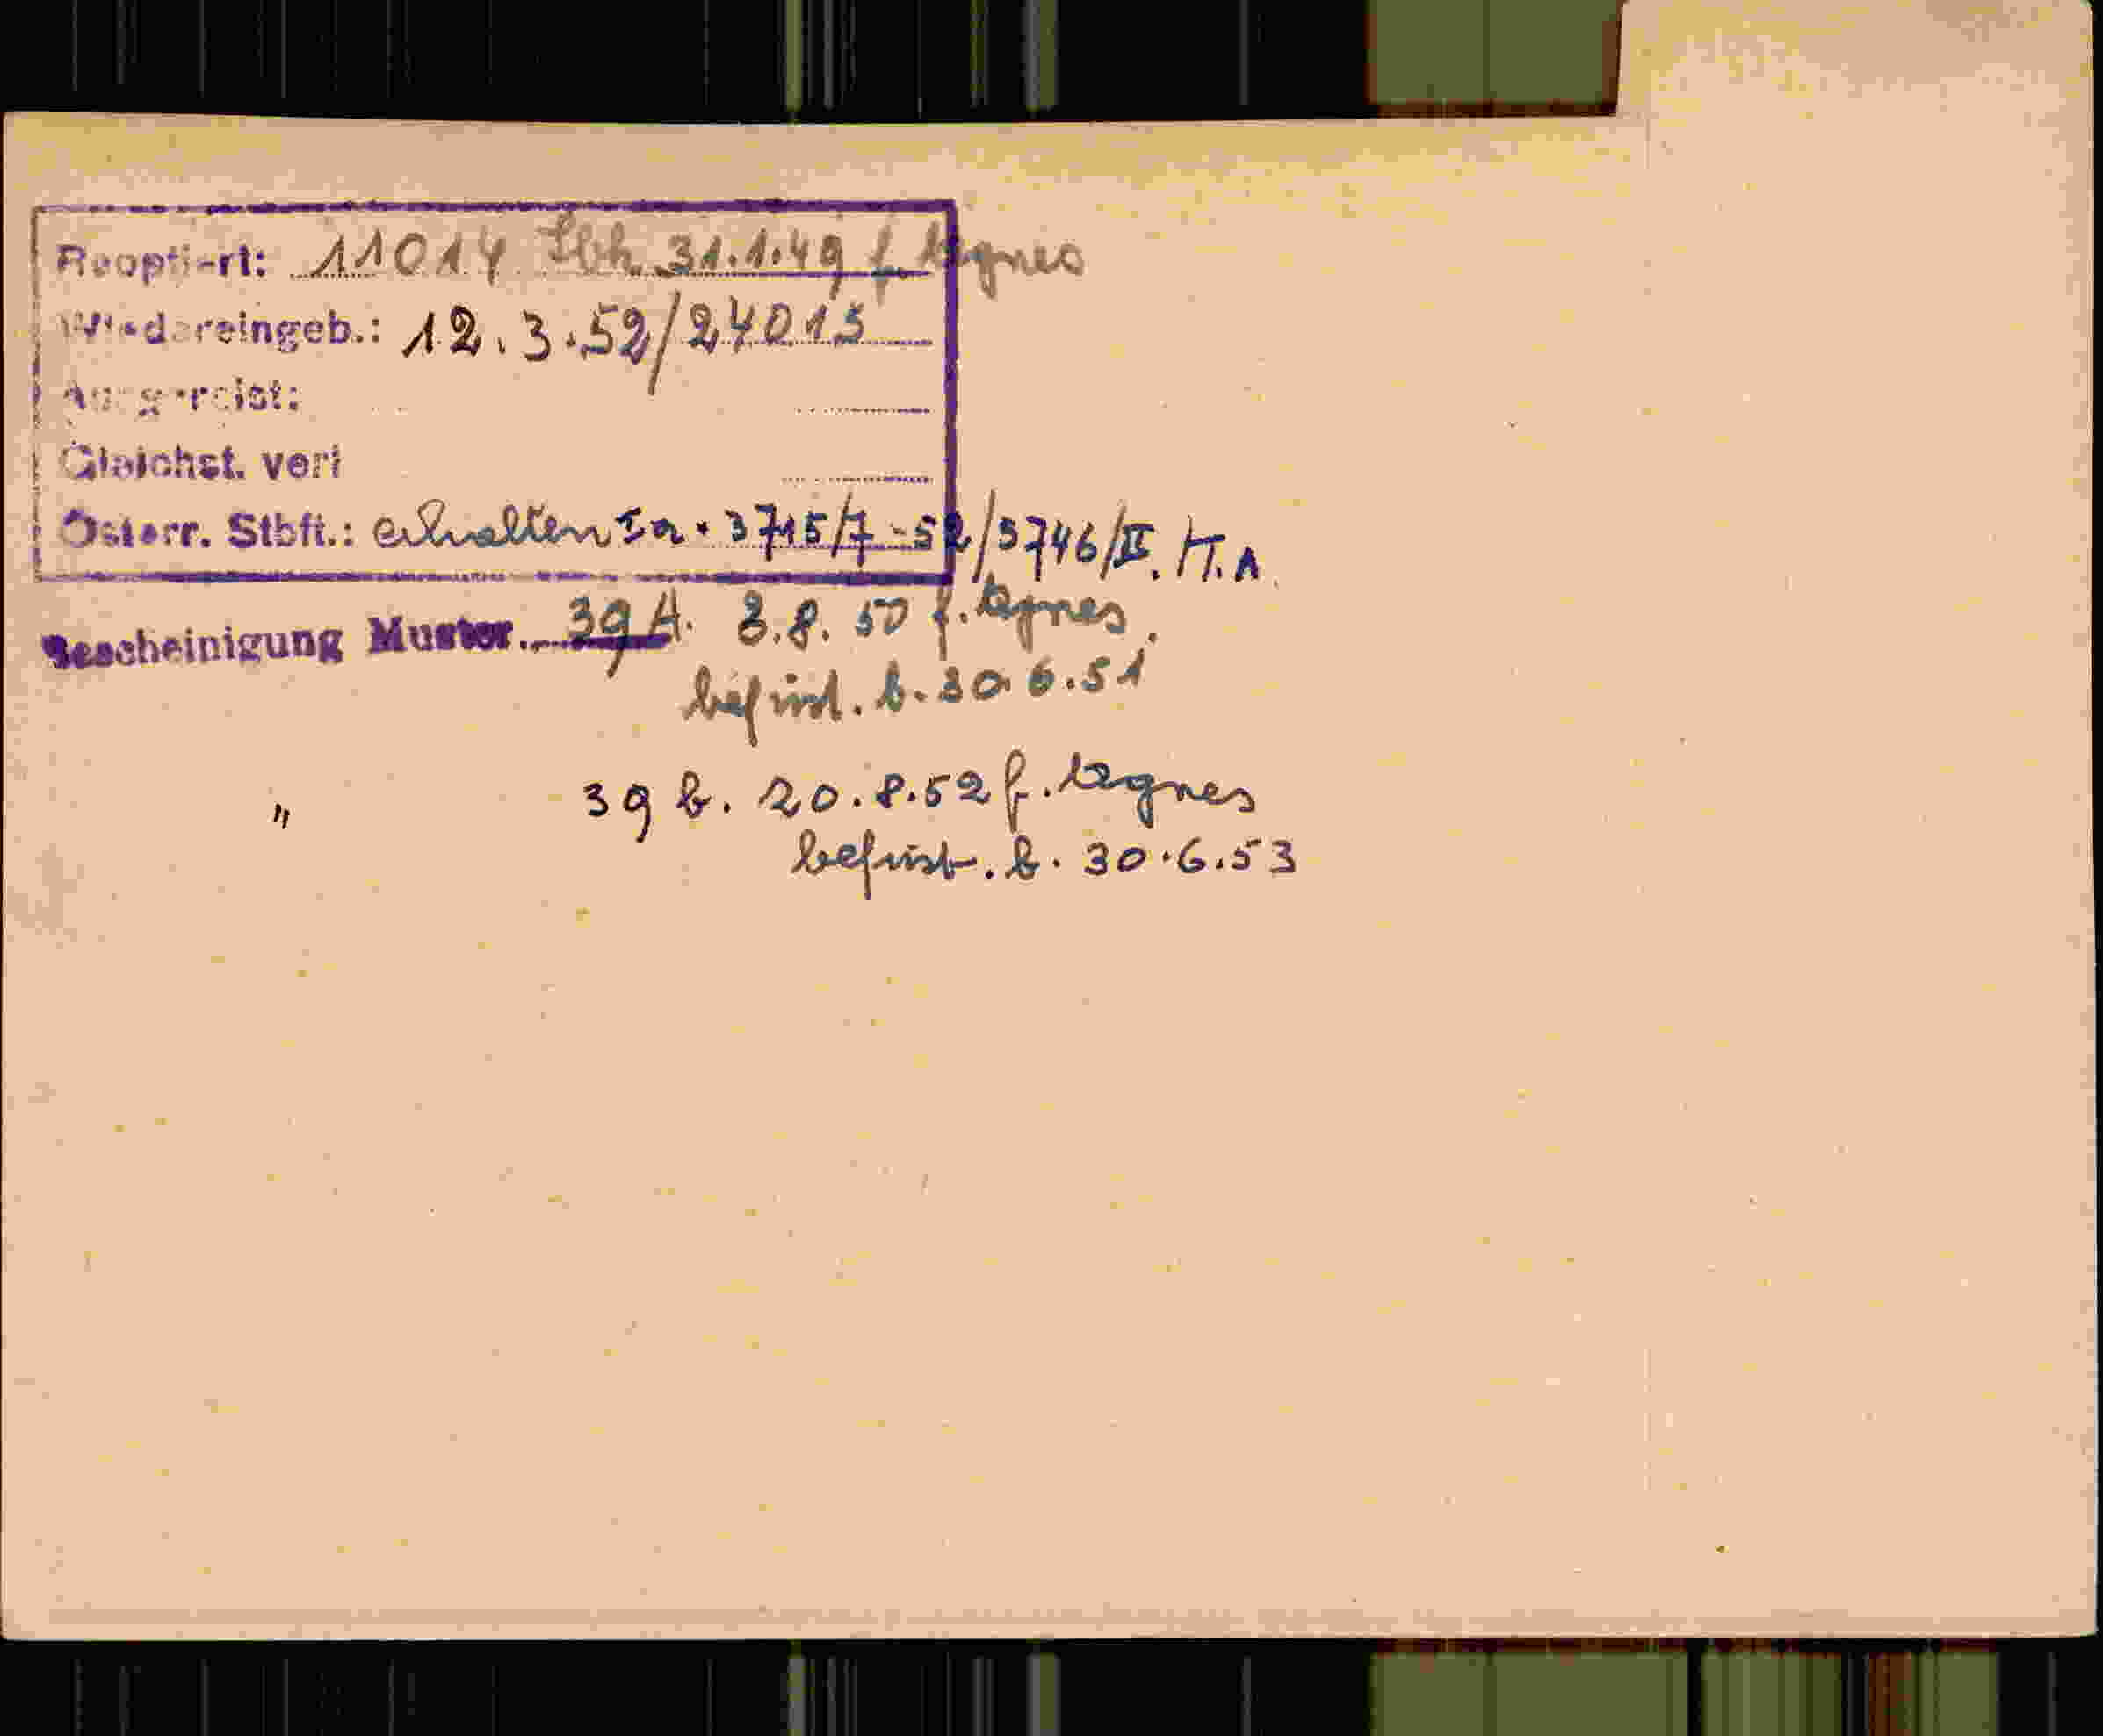 Reoptiert: 11014 31.1.49 f. Agnes
Wiedereingeb.: 12.3.52/24013
Ausgereist:
Gleichst. verl
Österr. Stbft.: erhalten Ia. 3715/7-52/3746/II./T.A.
Bescheinigung Muster 39 A. 3.8.50 f. Agnes.
befrist. b. 30.6.51
" 39 b. 20.8.52 f. Agnes
befrist. b. 30.6.53